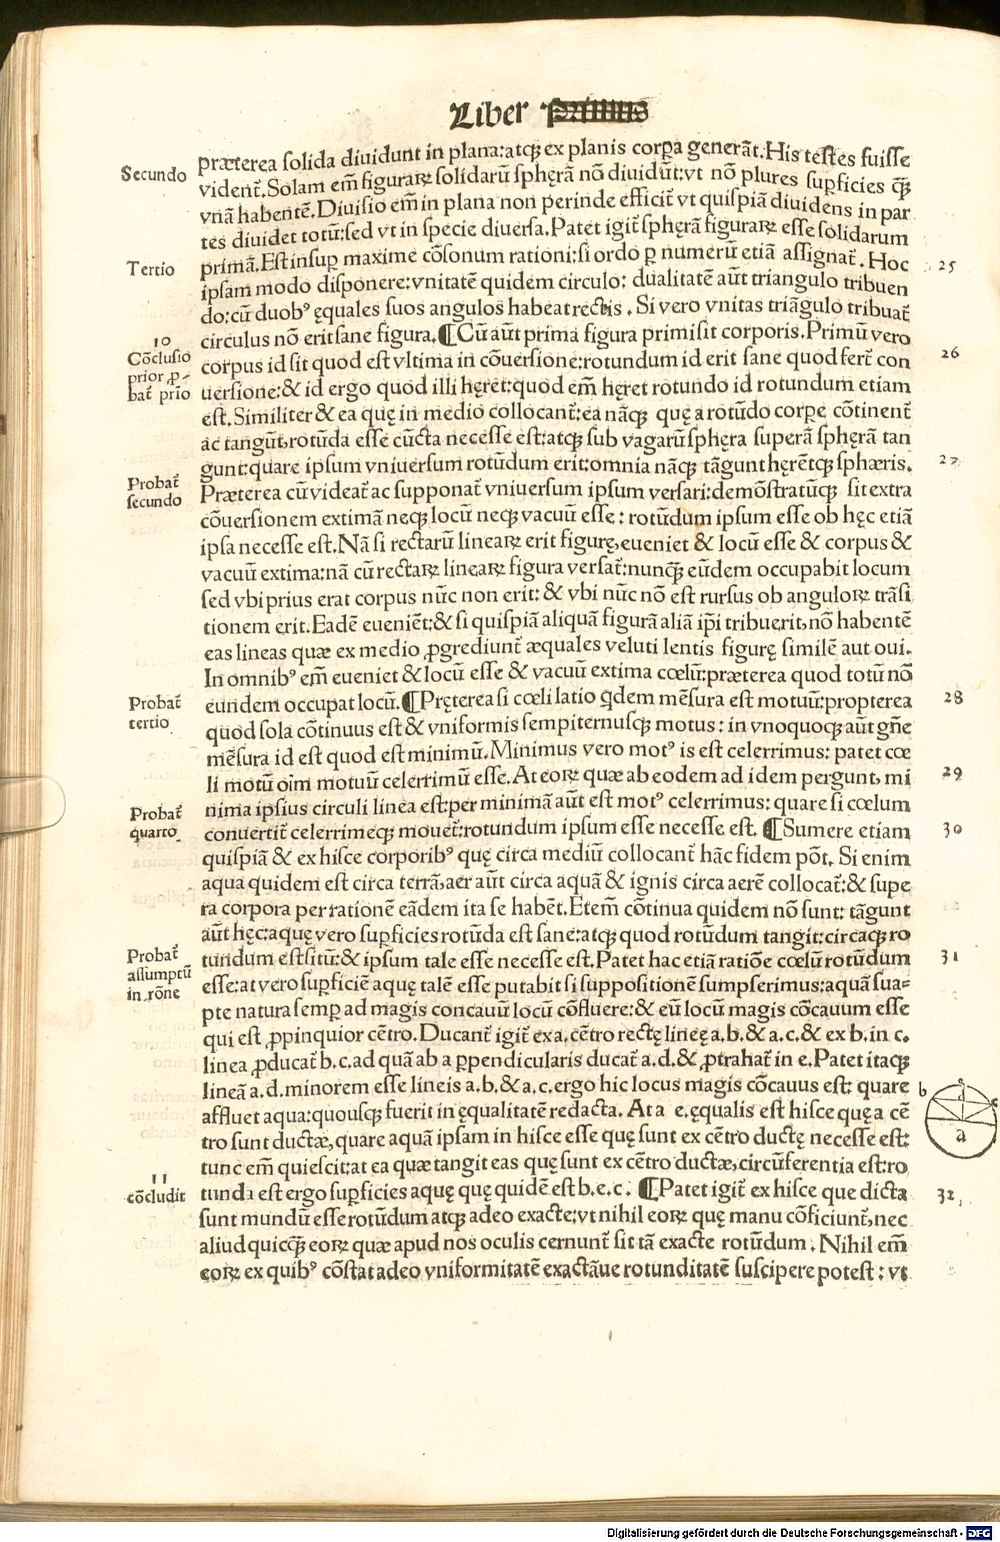 Liber Primus
Secundo
præterea solida diuidunt in plana: atqꝫ ex planis corꝑa generāt. His testes fuisse
vident̄. Solam em̄ figurarꝝ solidarū sphęrā nō diuidūt: vt nō plures suꝑficies qꝫ̄
vnā habentē. Diuisio em̄ in plana non perinde efficit̄ vt quispiā diuidens in par
tes diuidet totū: sed vt in specie diuersa. Patet igit̄ sphęrā figurarꝝ esse solidarum
Tertio
primā. Est insuꝑ maxime cōsonum rationi: si ordo ꝑ numerū etiā assignat̄. Hoc
25
ipsam modo disponere: vnitatē quidem circulo: dualitatē aūt triangulo tribuen
do: cū duobꝰ ęquales suos angulos habeat rectis. Si vero vnitas triāgulo tribuat̄
circulus nō erit sane figura. ¶Cū aūt prima figura primi sit corporis. Primū vero
10
Cōclusio
prior ꝓ-
bat̄ prīo
corpus id sit quod est vltima in cōuersione: rotundum id erit sane quod fert̄ con
26
uersione: & id ergo quod illi hęret: quod em̄ hęret rotundo id rotundum etiam
est. Similiter & ea quę in medio collocant̄: ea nāqꝫ quę a rotūdo corꝑe cōtinent̄
ac tangūt, rotūda esse cūcta necesse est: atqꝫ sub vagarū sphęra superā sphęrā tan
gunt: quare ipsum vniuersum rotūdum erit: omnia nāqꝫ tāgunt hęrētqꝫ sphæris.
27
Probat̄
secundo
Præterea cū videat̄ ac supponat̄ vniuersum ipsum versari: demōstratūqꝫ sit extra
cōuersionem extimā neqꝫ locū neqꝫ vacuū esse: rotūdum ipsum esse ob hęc etiā
ipsa necesse est. Nā si rectarū linearꝝ erit figurę, eueniet & locū esse & corpus &
vacuū extima: nā cū rectarꝝ linearꝝ figura versat̄: nunqꝫ̄ eūdem occupabit locum
sed vbi prius erat corpus nūc non erit: & vbi nūc nō est rursus ob angulorꝝ trāsi
tionem erit. Eadē eueniēt: & si quispiā aliquā figurā aliā ip̄i tribuerit, nō habentē
eas lineas quæ ex medio ꝓgrediunt̄ æquales veluti lentis figurę similē aut oui.
In omnibꝰ em̄ eueniet & locū esse & vacuū extima cœlū: præterea quod totū nō
Probat̄
tertio
eundem occupat locū. ¶Pręterea si cœli latio qdem mēsura est motuū: propterea
28
quod sola cōtinuus est & vniformis sempiternusqꝫ motus: in vnoquoqꝫ aūt gn̄e
mēsura id est quod est minimū. Minimus vero motꝰ is est celerrimus: patet cœ
li motū oīm motuū celerrimū esse. At eorꝝ quæ ab eodem ad idem pergunt, mi
29
Probat̄
quarto
nima ipsius circuli linea est: per minimā aūt est motꝰ celerrimus: quare si cœlum
conuertit̄ celerrimeqꝫ mouet̄: rotundum ipsum esse necesse est. ¶Sumere etiam
30
quispiā & ex hisce corporibꝰ quę circa mediū collocant̄ hāc fidem pōt. Si enim
aqua quidem est circa terrā, aer aūt circa aquā & ignis circa aerē collocat̄: & supe
ra corpora per rationē eādem ita se habēt. Etem̄ cōtinua quidem nō sunt: tāgunt
aūt hęc: aquę vero suꝑficies rotūda est sane: atqꝫ quod rotūdum tangit: circaqꝫ ro
Probat̄
assumptū
in rōne
tundum est sitū: & ipsum tale esse necesse est. Patet hac etiā ratiōe cœlū rotūdum
31
esse: at vero suꝑficiē aquę talē esse putabit si suppositionē sumpserimus: aquā sua-
pte natura semꝑ ad magis concauū locū cōfluere: & eū locū magis cōcauum esse
qui est ꝓpinquior cētro. Ducant̄ igit̄ ex a. cētro rectę lineę a. b. & a. c. & ex b. in c.
linea ꝓducat̄ b. c. ad quā ab a ꝑpendicularis ducat̄ a. d. & ꝓtrahat̄ in e. Patet itaqꝫ
lineā a. d. minorem esse lineis a. b. & a. c. ergo hic locus magis cōcauus est: quare
affluet aqua: quousqꝫ fuerit in ęqualitatē redacta. At a e. ęqualis est hisce quę a cē
tro sunt ductæ, quare aquā ipsam in hisce esse quę sunt ex cētro ductę necesse est:
b e c
d
a
tunc em̄ quiescit: at ea quæ tangit eas quę sunt ex cētro ductæ, circūferentia est: ro
11
cōcludit
tunda est ergo suꝑficies aquę quę quidē est b. e. c. ¶Patet igit̄ ex hisce que dicta
32
sunt mundū esse rotūdum atqꝫ adeo exacte: vt nihil eorꝝ quę manu cōficiunt̄, nec
aliud quicqꝫ̄ eorꝝ quæ apud nos oculis cernunt̄ sit tā exacte rotūdum. Nihil em̄
eorꝝ ex quibꝰ cōstat adeo vniformitatē exactāue rotunditatē suscipere potest: vt
Digitalisierung gefördert durch die Deutsche Forschungsgemeinschaft - DFG